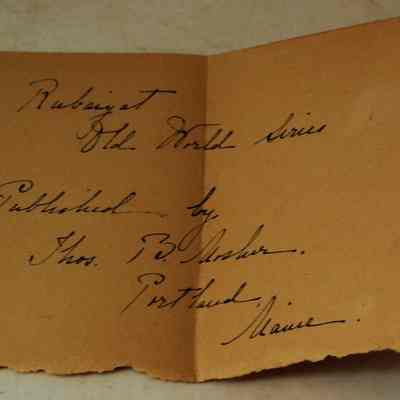 Rubaiyat
Old World Series
Published by
Thos. B. Mosher.
Portland,
Maine.